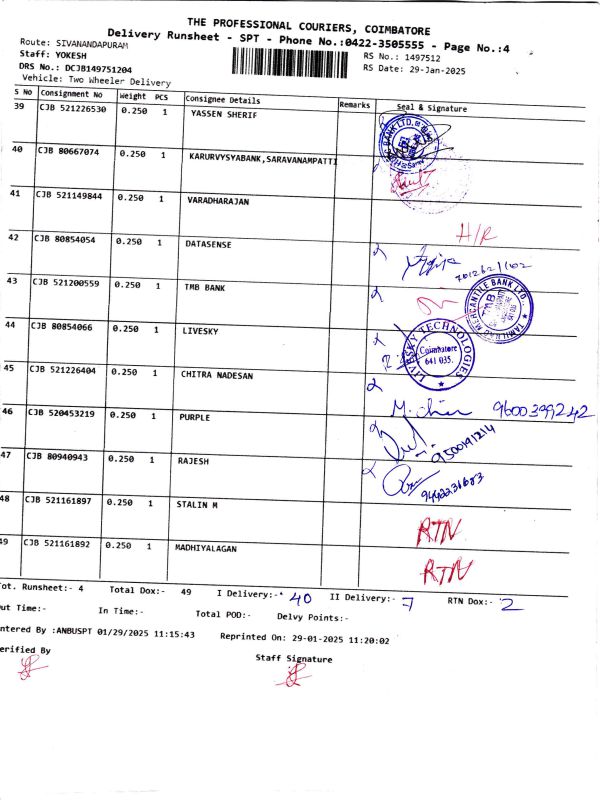 THE PROFESSIONAL COURIERS, COIMBATORE
Delivery Runsheet - SPT - Phone No.:0422-3505555 - Page No.:4
Route: SIVANANDAPURAM
RS No.: 1497512
Staff: YOKESH
RS Date: 29-Jan-2025
DRS No.: DCJB149751204
Vehicle: Two Wheeler Delivery
S NO Consignment No Weight PCS Consignee Details Remarks Seal & Signature
39 CJB 521226530 0.250 1 YASSEN SHERIF
40 CJB 80667074 0.250 1 KARURVYSYABANK,SARAVANAMPATTI
41 CJB 521149844 0.250 1 VARADHARAJAN H/R
42 CJB 80854054 0.250 1 DATASENSE
43 CJB 521200559 0.250 1 TMB BANK TAMILNAD MERCANTILE BANK LTD. TMB
44 CJB 80854066 0.250 1 LIVESKY LIVESKY TECHNOLOGIES Coimbatore 641 035.
45 CJB 521226404 0.250 1 CHITRA NADESAN 9600399242
46 CJB 520453219 0.250 1 PURPLE 9500191214
47 CJB 80940943 0.250 1 RAJESH
48 CJB 521161897 0.250 1 STALIN M RTN
49 CJB 521161892 0.250 1 MADHIYALAGAN RTN
ot. Runsheet:- 4 Total Dox:- 49 I Delivery:- 40 II Delivery:- 7 RTN Dox:- 2
ut Time:- In Time:- Total POD:- Delvy Points:-
ntered By :ANBUSPT 01/29/2025 11:15:43 Reprinted On: 29-01-2025 11:20:02
erified By
Staff Signature